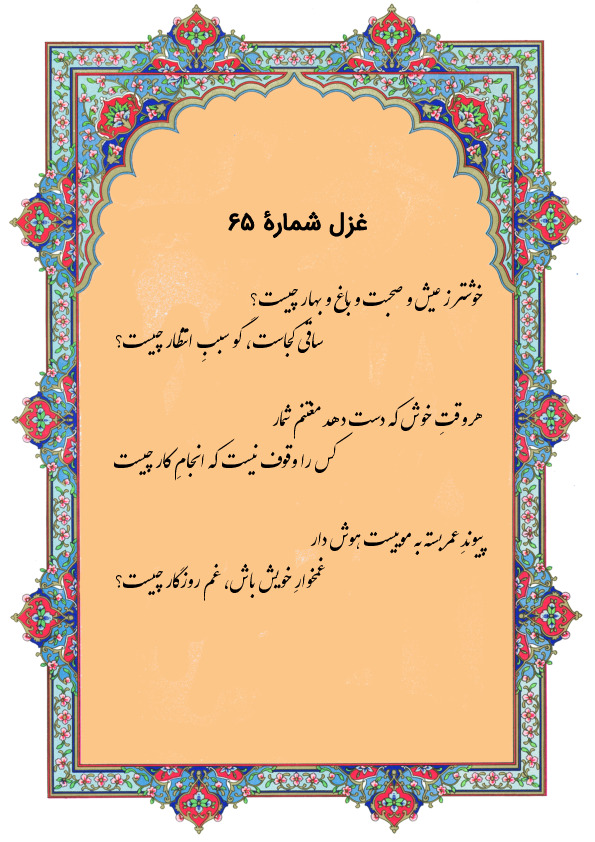 غزل شمارهٔ ۶۵
خوشتر ز عیش و صحبت و باغ و بهار چیست؟
ساقی کجاست، گو سببِ انتظار چیست؟
هر وقتِ خوش که دست دهد مغتنم شمار
کس را وقوف نیست که انجامِ کار چیست
پیوندِ عمر بسته به موییست هوش دار
غمخوارِ خویش باش، غم روزگار چیست؟